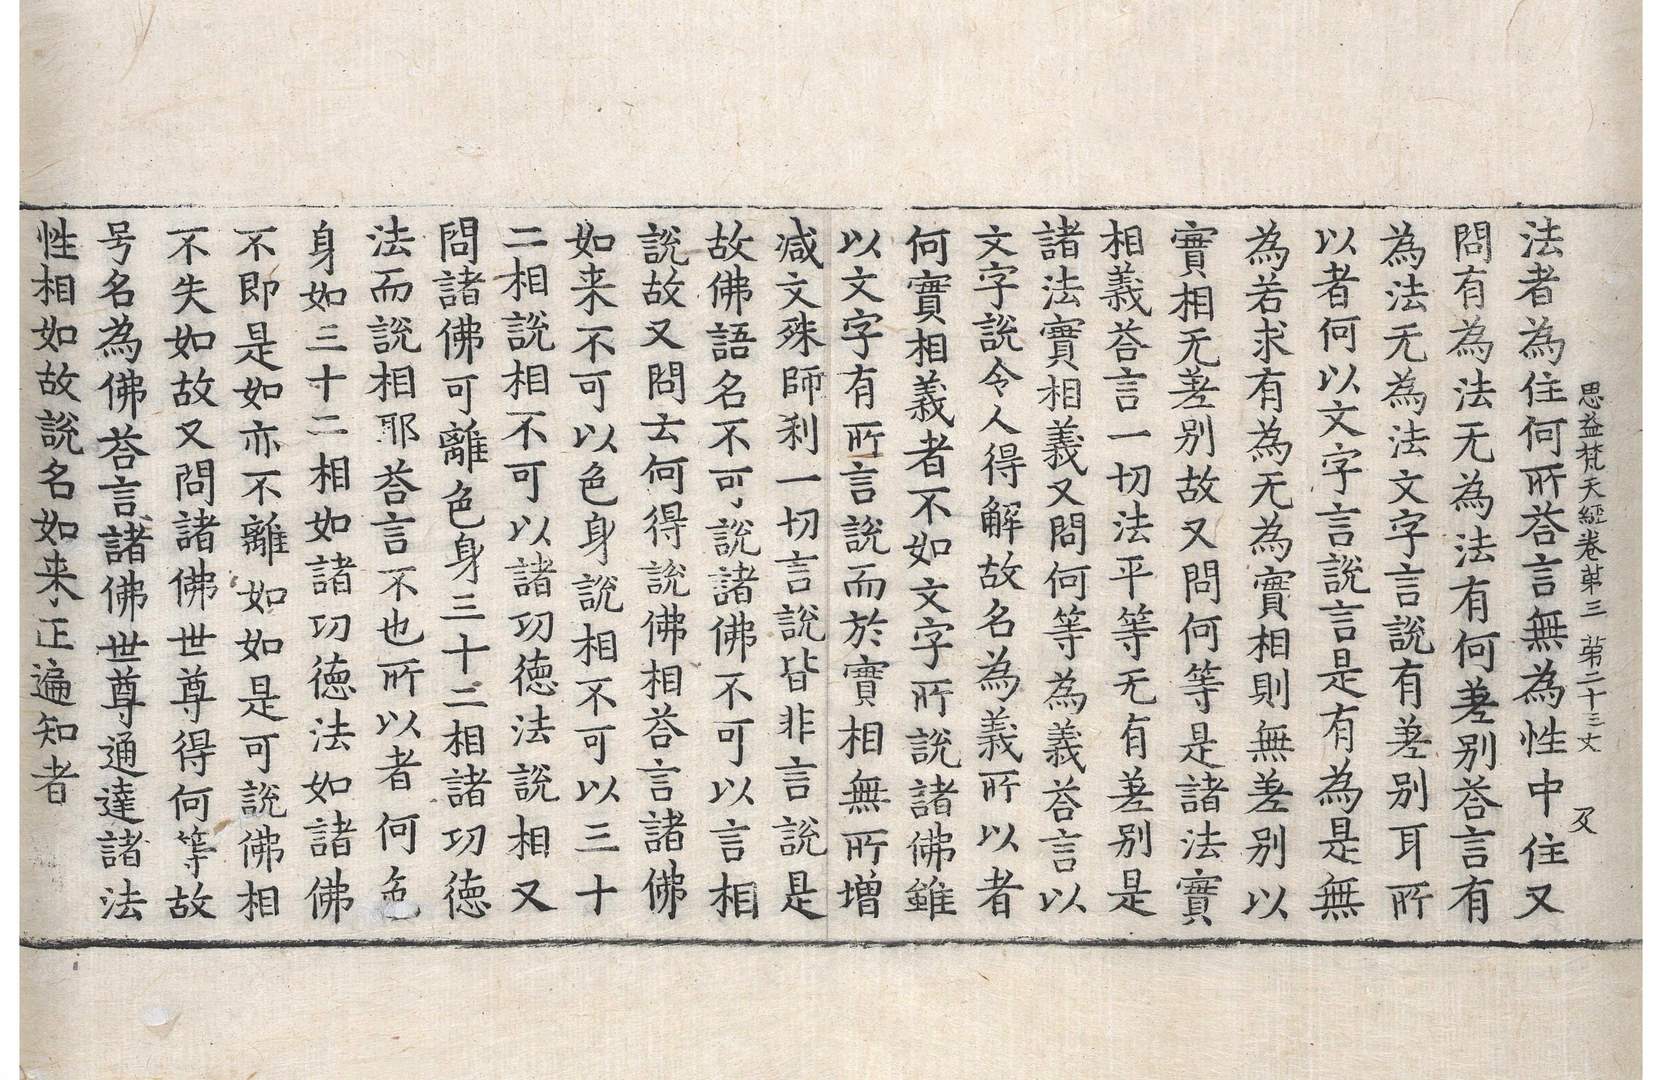 思益梵天經卷第三 第二十三丈 及
法者為住何所荅言無為性中住又
問有為法无為法有何差别荅言有
為法无為法文字言說有差别耳所
以者何以文字言說言是有為是無
為若求有為无為實相則無差别以
實相无差别故又問何等是諸法實
相義荅言一切法平等无有差别是
諸法實相義又問何等為義荅言以
文字說令人得解故名為義所以者
何實相義者不如文字所說諸佛雖
以文字有所言說而於實相無所增
減文殊師利一切言說皆非言說是
故佛語名不可說諸佛不可以言相
說故又問云何得說佛相荅言諸佛
如来不可以色身說相不可以三十
二相說相不可以諸功德法說相又
問諸佛可離色身三十二相諸功德
法而說相耶荅言不也所以者何色
身如三十二相如諸功德法如諸佛
不即是如亦不離如如是可說佛相
不失如故又問諸佛世尊得何等故
号名為佛荅言諸佛世尊通達諸法
性相如故說名如来正遍知者